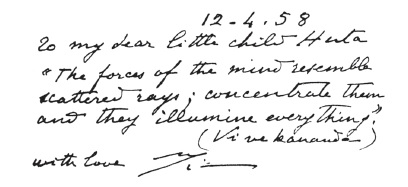 12-4.58
To my dear little child Huta
"The forces of the mind resemble
scattered rays; concentrate them
and they illumine everything."
(Vivekananda)
with love